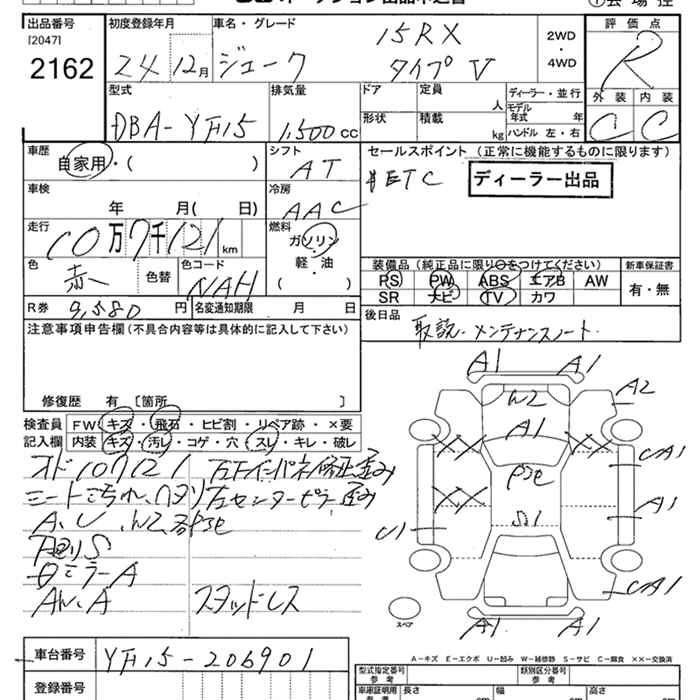 出品番号 初度登録年月 車名・グレード 評価点
[2047] 15RX 2WD・4WD R
2162 24 12月 ジューク タイプV
型式 排気量 ドア 定員 人 ディーラー・並行 外装 内装
DBA-YF15 1,500cc 形状 積載 kg モデル年式 年 ハンドル 左・右 C C
車歴 シフト セールスポイント (正常に機能するものに限ります)
自家用・( ) AT ETC ディーラー出品
車検 冷房
年 月( 日) AAC
走行 燃料
10万7千121km ガソリン
軽・油
( )
色 色替 色コード 装備品 (純正品に限り○をつけてください) 新車保証書
赤 NAH PS PW ABS エアB AW 有・無
SR ナビ TV カワ
R券 9,580円 名変通知期限 月 日 後日品
取説・メンテナンスノート
注意事項申告欄(不具合内容等は具体的に記入して下さい)
修復歴 有 〔箇所
検査員 FW キズ・飛石・ヒビ割・リペア跡・×要
記入欄 内装 キズ・汚レ・コゲ・穴・スレ・キレ・破レ
オド107121
シートヨゴレ、ヘタリ 左センターピラー歪み
A、U、W2、
ミラーA
AW、A スタッドレス
A1 A1
W2 A2
A1
UA1
A1
S1
U1
UA1
A1 A1
スペア
A-キズ E-エクボ U-凹み W-補修跡 S-サビ C-腐食 ××-交換済
車台番号 YF15-206901
登録番号
型式指定番号 類別区分番号
車庫証明用 長さ cm 幅 cm 高さ cm